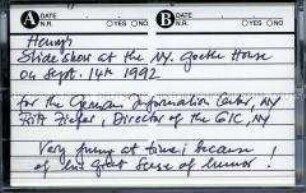 A DATE N.R. ○YES ○NO B DATE N.R. ○YES ○NO
Slide show at the NY. Goethe House
on Sept. 14th 1992
for the German Information Center, NY
Director of the GIC, NY
Very funny at times because
of his great sense of humor!